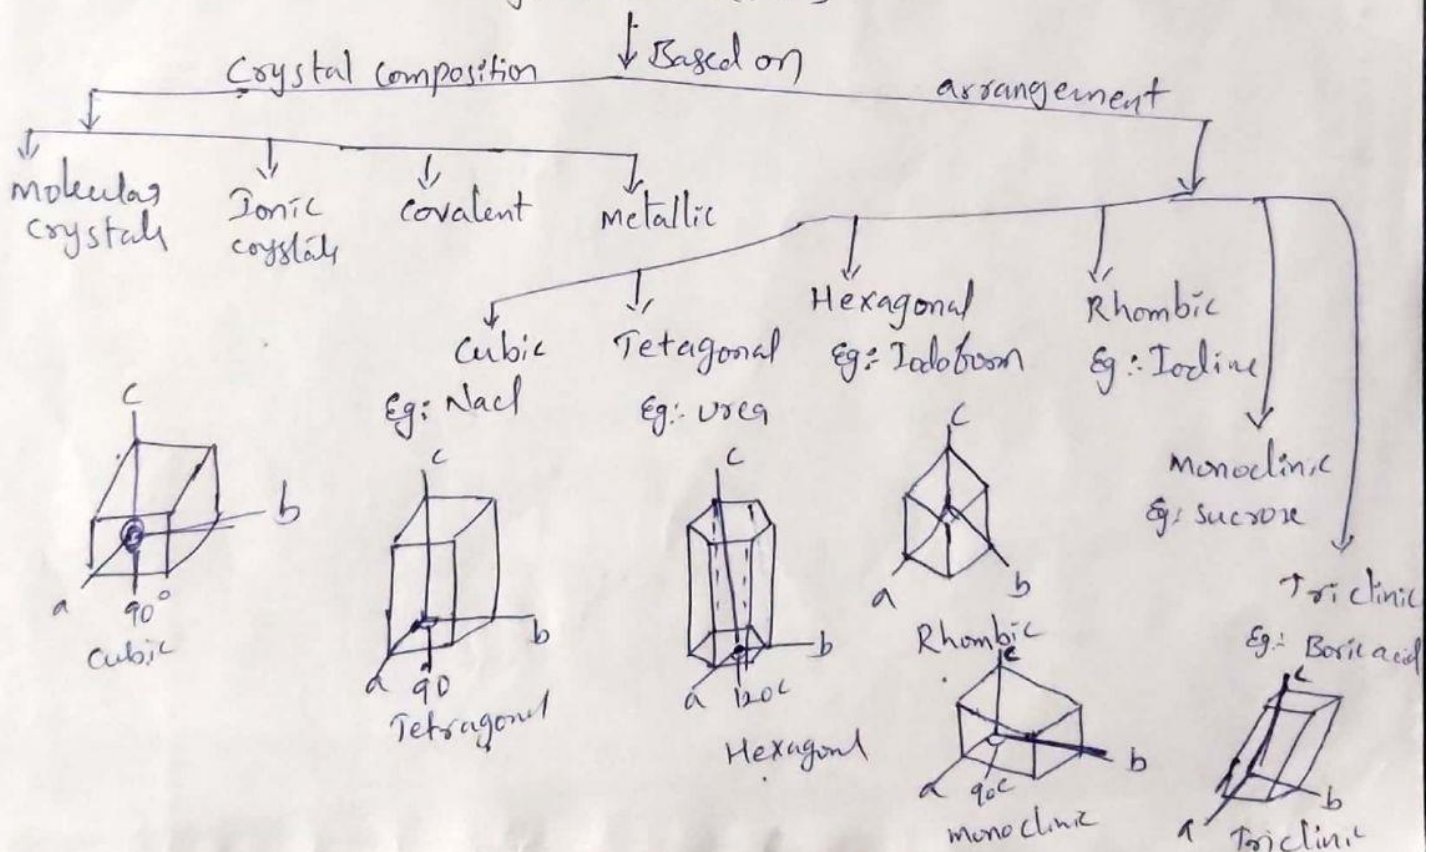 Based on
Crystal composition
arrangement
Molecular
crystals
Ionic
crystals
Covalent
Metallic
Cubic
Eg: Nacl
Tetagonal
Eg:- urea
Hexagonal
Eg:- Iodoform
Rhombic
Eg:- Iodine
Monoclinic
Eg: Sucrose
Triclinic
Eg:- Boric acid
c
b
a
90°
Cubic
c
b
a
90
Tetragonal
c
b
a
120c
Hexagonl
c
a
b
Rhombic
c
b
a
90c
monoclinic
c
b
a
Triclinic